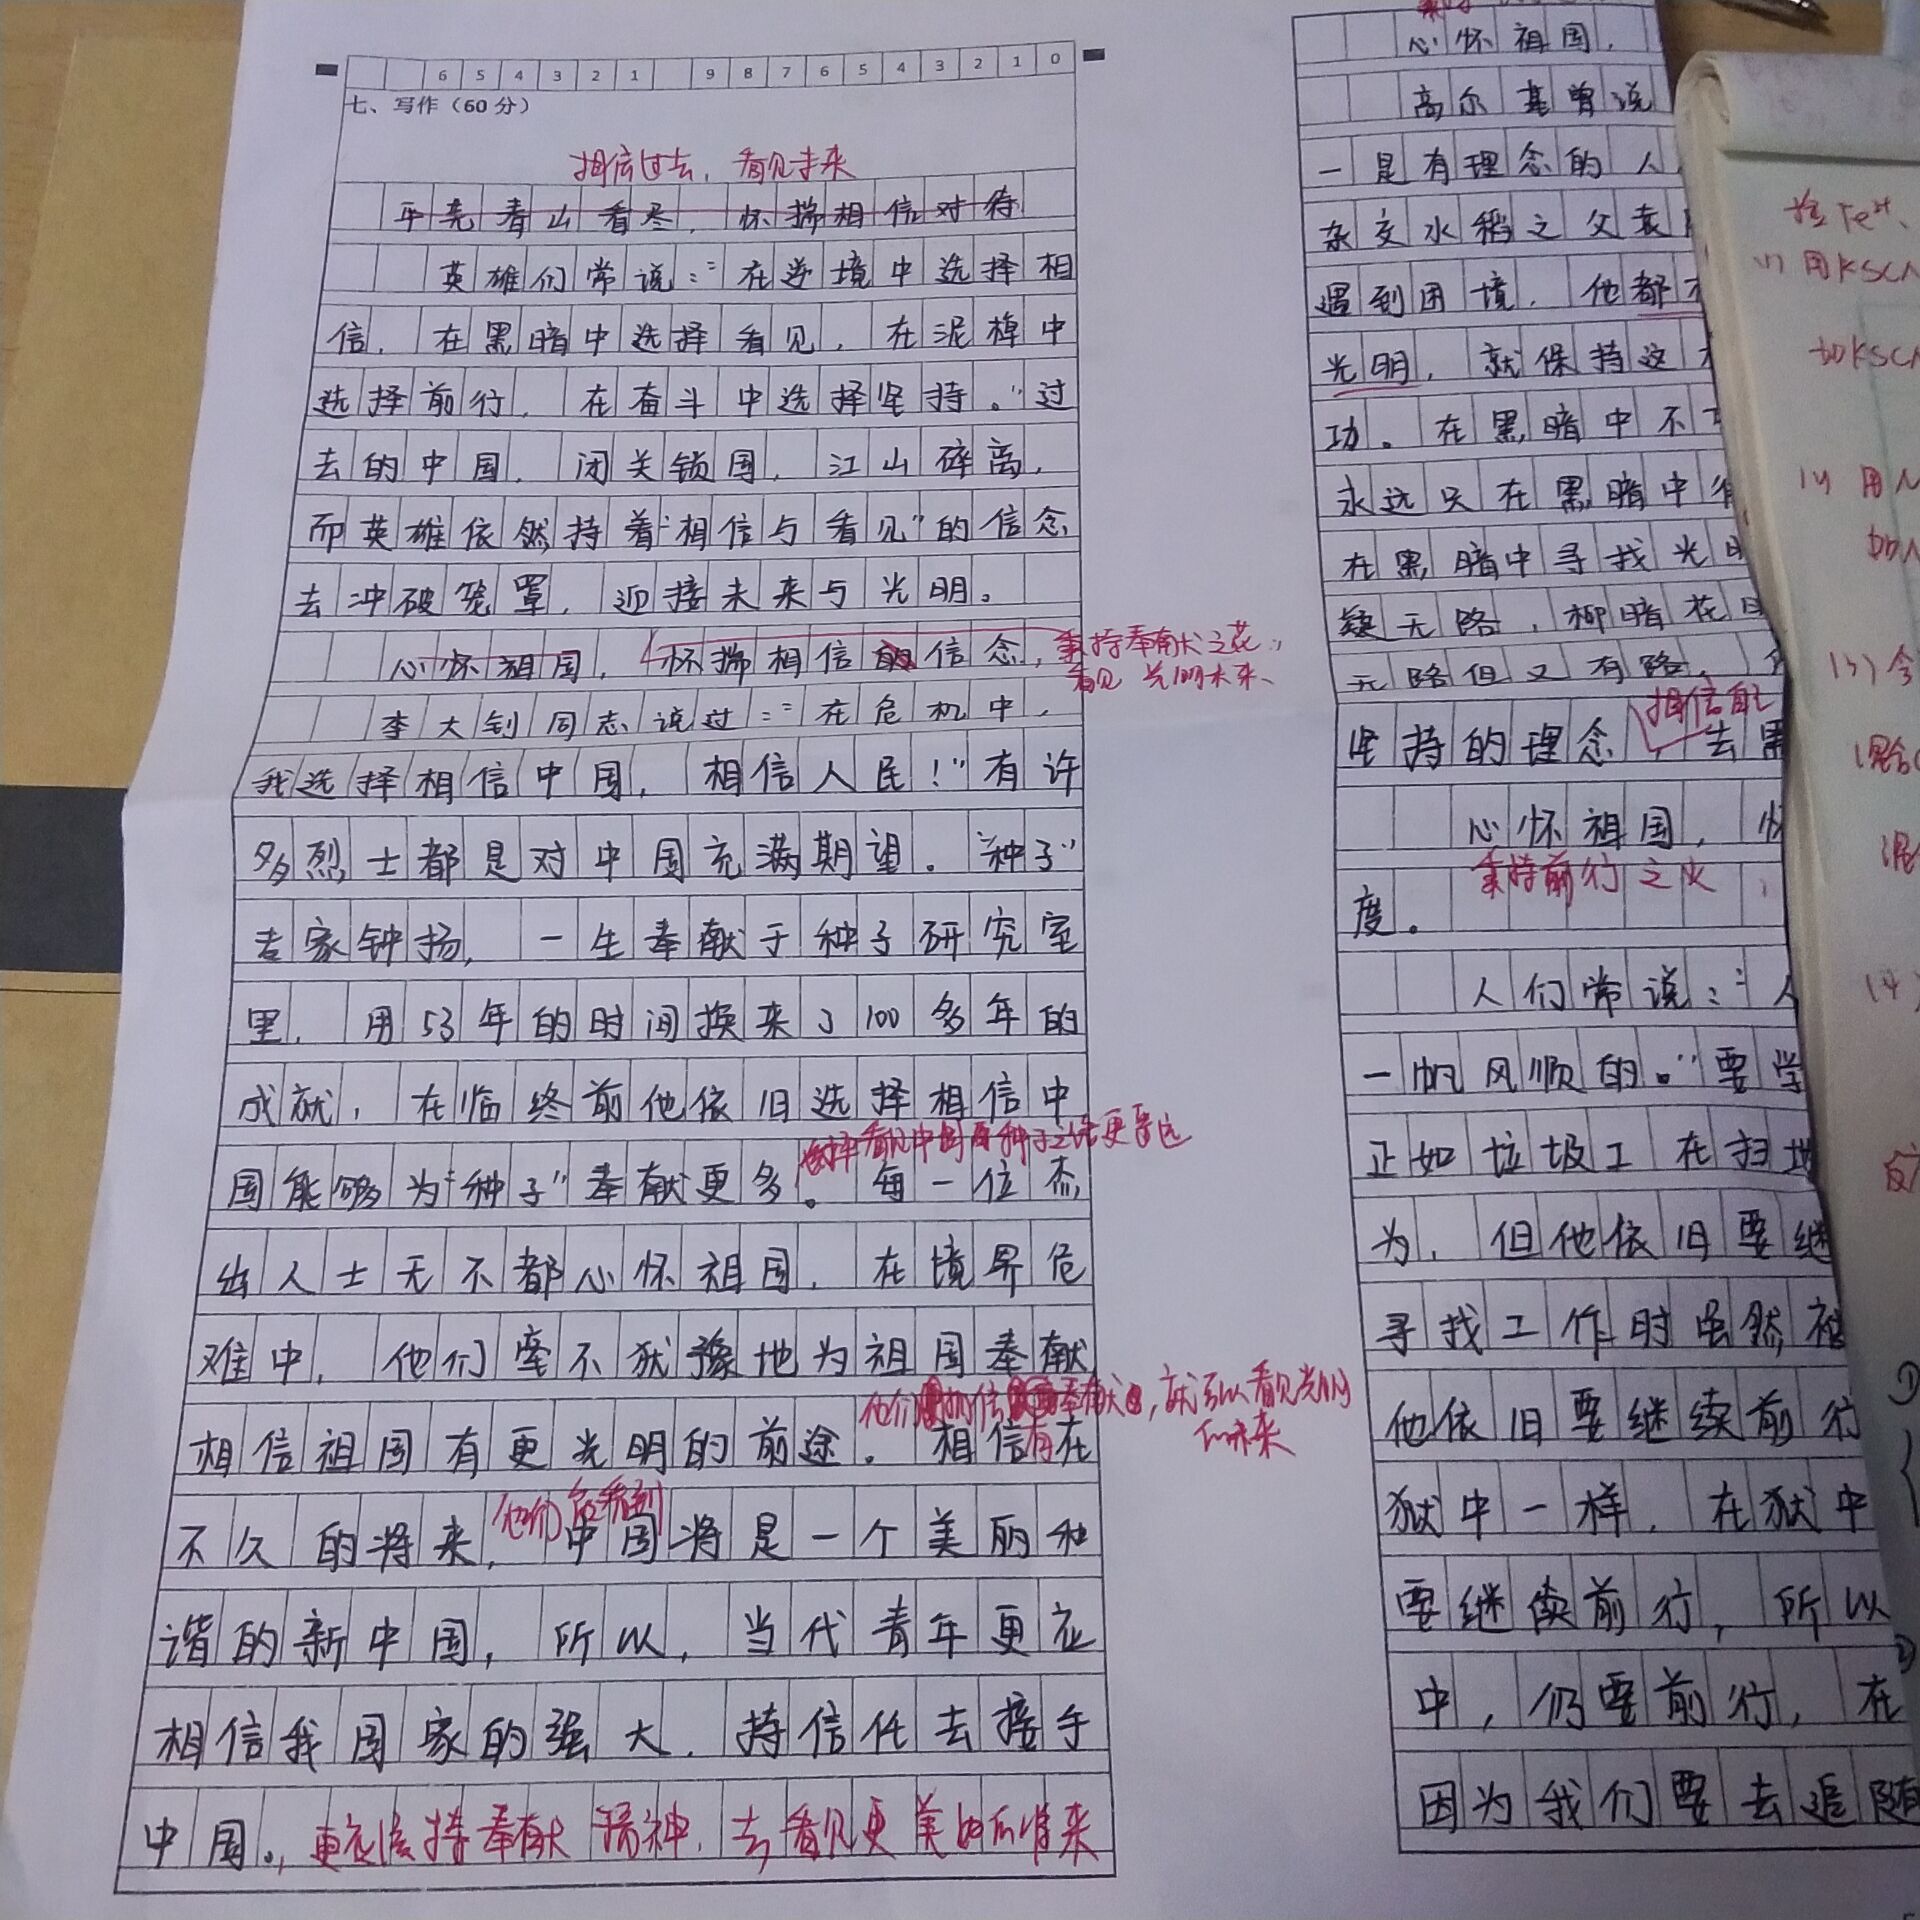 6 5 4 3 2 1 9 8 7 6 5 4 3 2 1 0
七、写作（60分）
相信过去，看见未来
英雄们常说：“在逆境中选择相
信，在黑暗中选择看见，在泥棹中
选择前行，在奋斗中选择坚持。”过
去的中国，闭关锁国，江山碎离，
而英雄依然持着“相信与看见”的信念
去冲破笼罩，迎接未来与光明。
心怀祖国，怀揣相信的信念，秉持奉献之花，
看见光明未来、
李大钊同志说过：“在危机中，
我选择相信中国，相信人民！”有许
多烈士都是对中国充满期望。“种子”
专家钟扬，一生奉献于种子研究室
里，用53年的时间换来了100多年的
成就，在临终前他依旧选择相信中
国能够为“种子”奉献更多。每一位杰
出人士无不都心怀祖国，在境界危
难中，他们毫不犹豫地为祖国奉献
相信祖国有更光明的前途。相信在
不久的将来，中国将是一个美丽和
谐的新中国，所以，当代青年更应
相信我国家的强大，持信任去接手
中国。，更应该持奉献精神，去看见更美的将来
心怀祖国，
高尔基曾说
一是有理念的人
杂交水稻之父袁
遇到困境，他都
光明，就保持这
功。在黑暗中不
永远只在黑暗中
在黑暗中寻找光
疑无路，柳暗花
无路但又有路，
坚持的理念，去
相信
心怀祖国，
秉持前行之火
度。
人们常说：“人
一帆风顺的。”要学
正如垃圾工在扫地
为，但他依旧要继
寻找工作时虽然被
他依旧要继续前行
狱中一样，在狱中
要继续前行，所以
中，仍要前行，在
因为我们要去追随
用KSCN
加KSCN